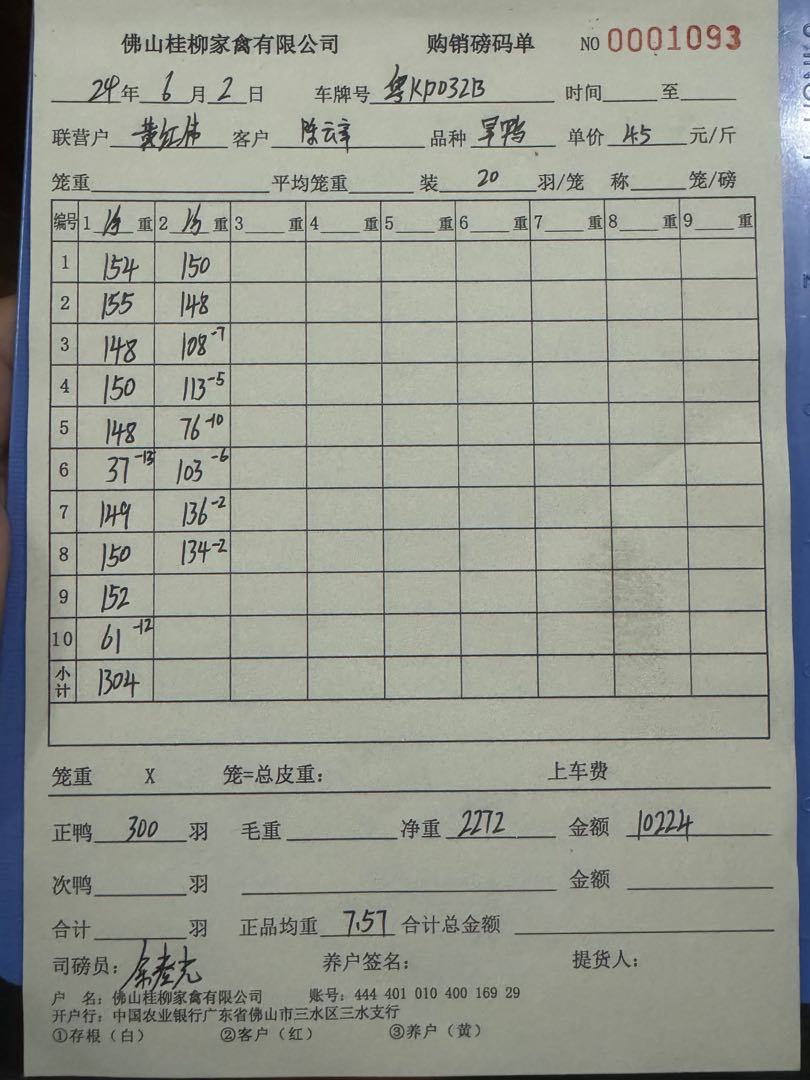 佛山桂柳家禽有限公司 购销磅码单 NO 0001093
24年 6月 2日 车牌号 粤KP032B 时间 至
联营户 黄红伟 客户 陈云幸 品种 旱鸭 单价 4.5 元/斤
笼重 平均笼重 装 20 羽/笼 称 笼/磅
编号 1 净 重 2 净 重 3 重 4 重 5 重 6 重 7 重 8 重 9 重
1 154 150
2 155 148
3 148 108-7
4 150 113-5
5 148 76-10
6 37-13 103-6
7 149 136-2
8 150 134-2
9 152
10 61-12
小计 1304
笼重 X 笼=总皮重： 上车费
正鸭 300 羽 毛重 净重 2272 金额 10224
次鸭 羽 金额
合计 羽 正品均重 7.57 合计总金额
司磅员： 养户签名： 提货人：
户 名：佛山桂柳家禽有限公司 账号：444 401 010 400 169 29
开户行：中国农业银行广东省佛山市三水区三水支行
①存根（白） ②客户（红） ③养户（黄）